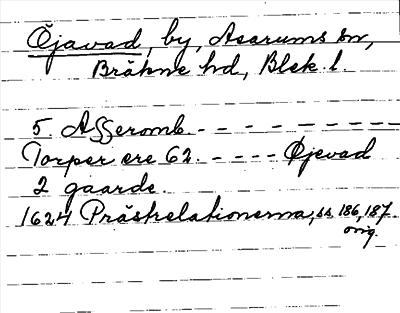 Öjavad, by, Asarums sn,
Bräkne hd, Blek. l.
5. Asseromb. - - - - - - - - -
Torper ere 62. - - - - Øjevad
2 gaarde.
1624 Prästrelationerna, ss. 186, 187.
orig.